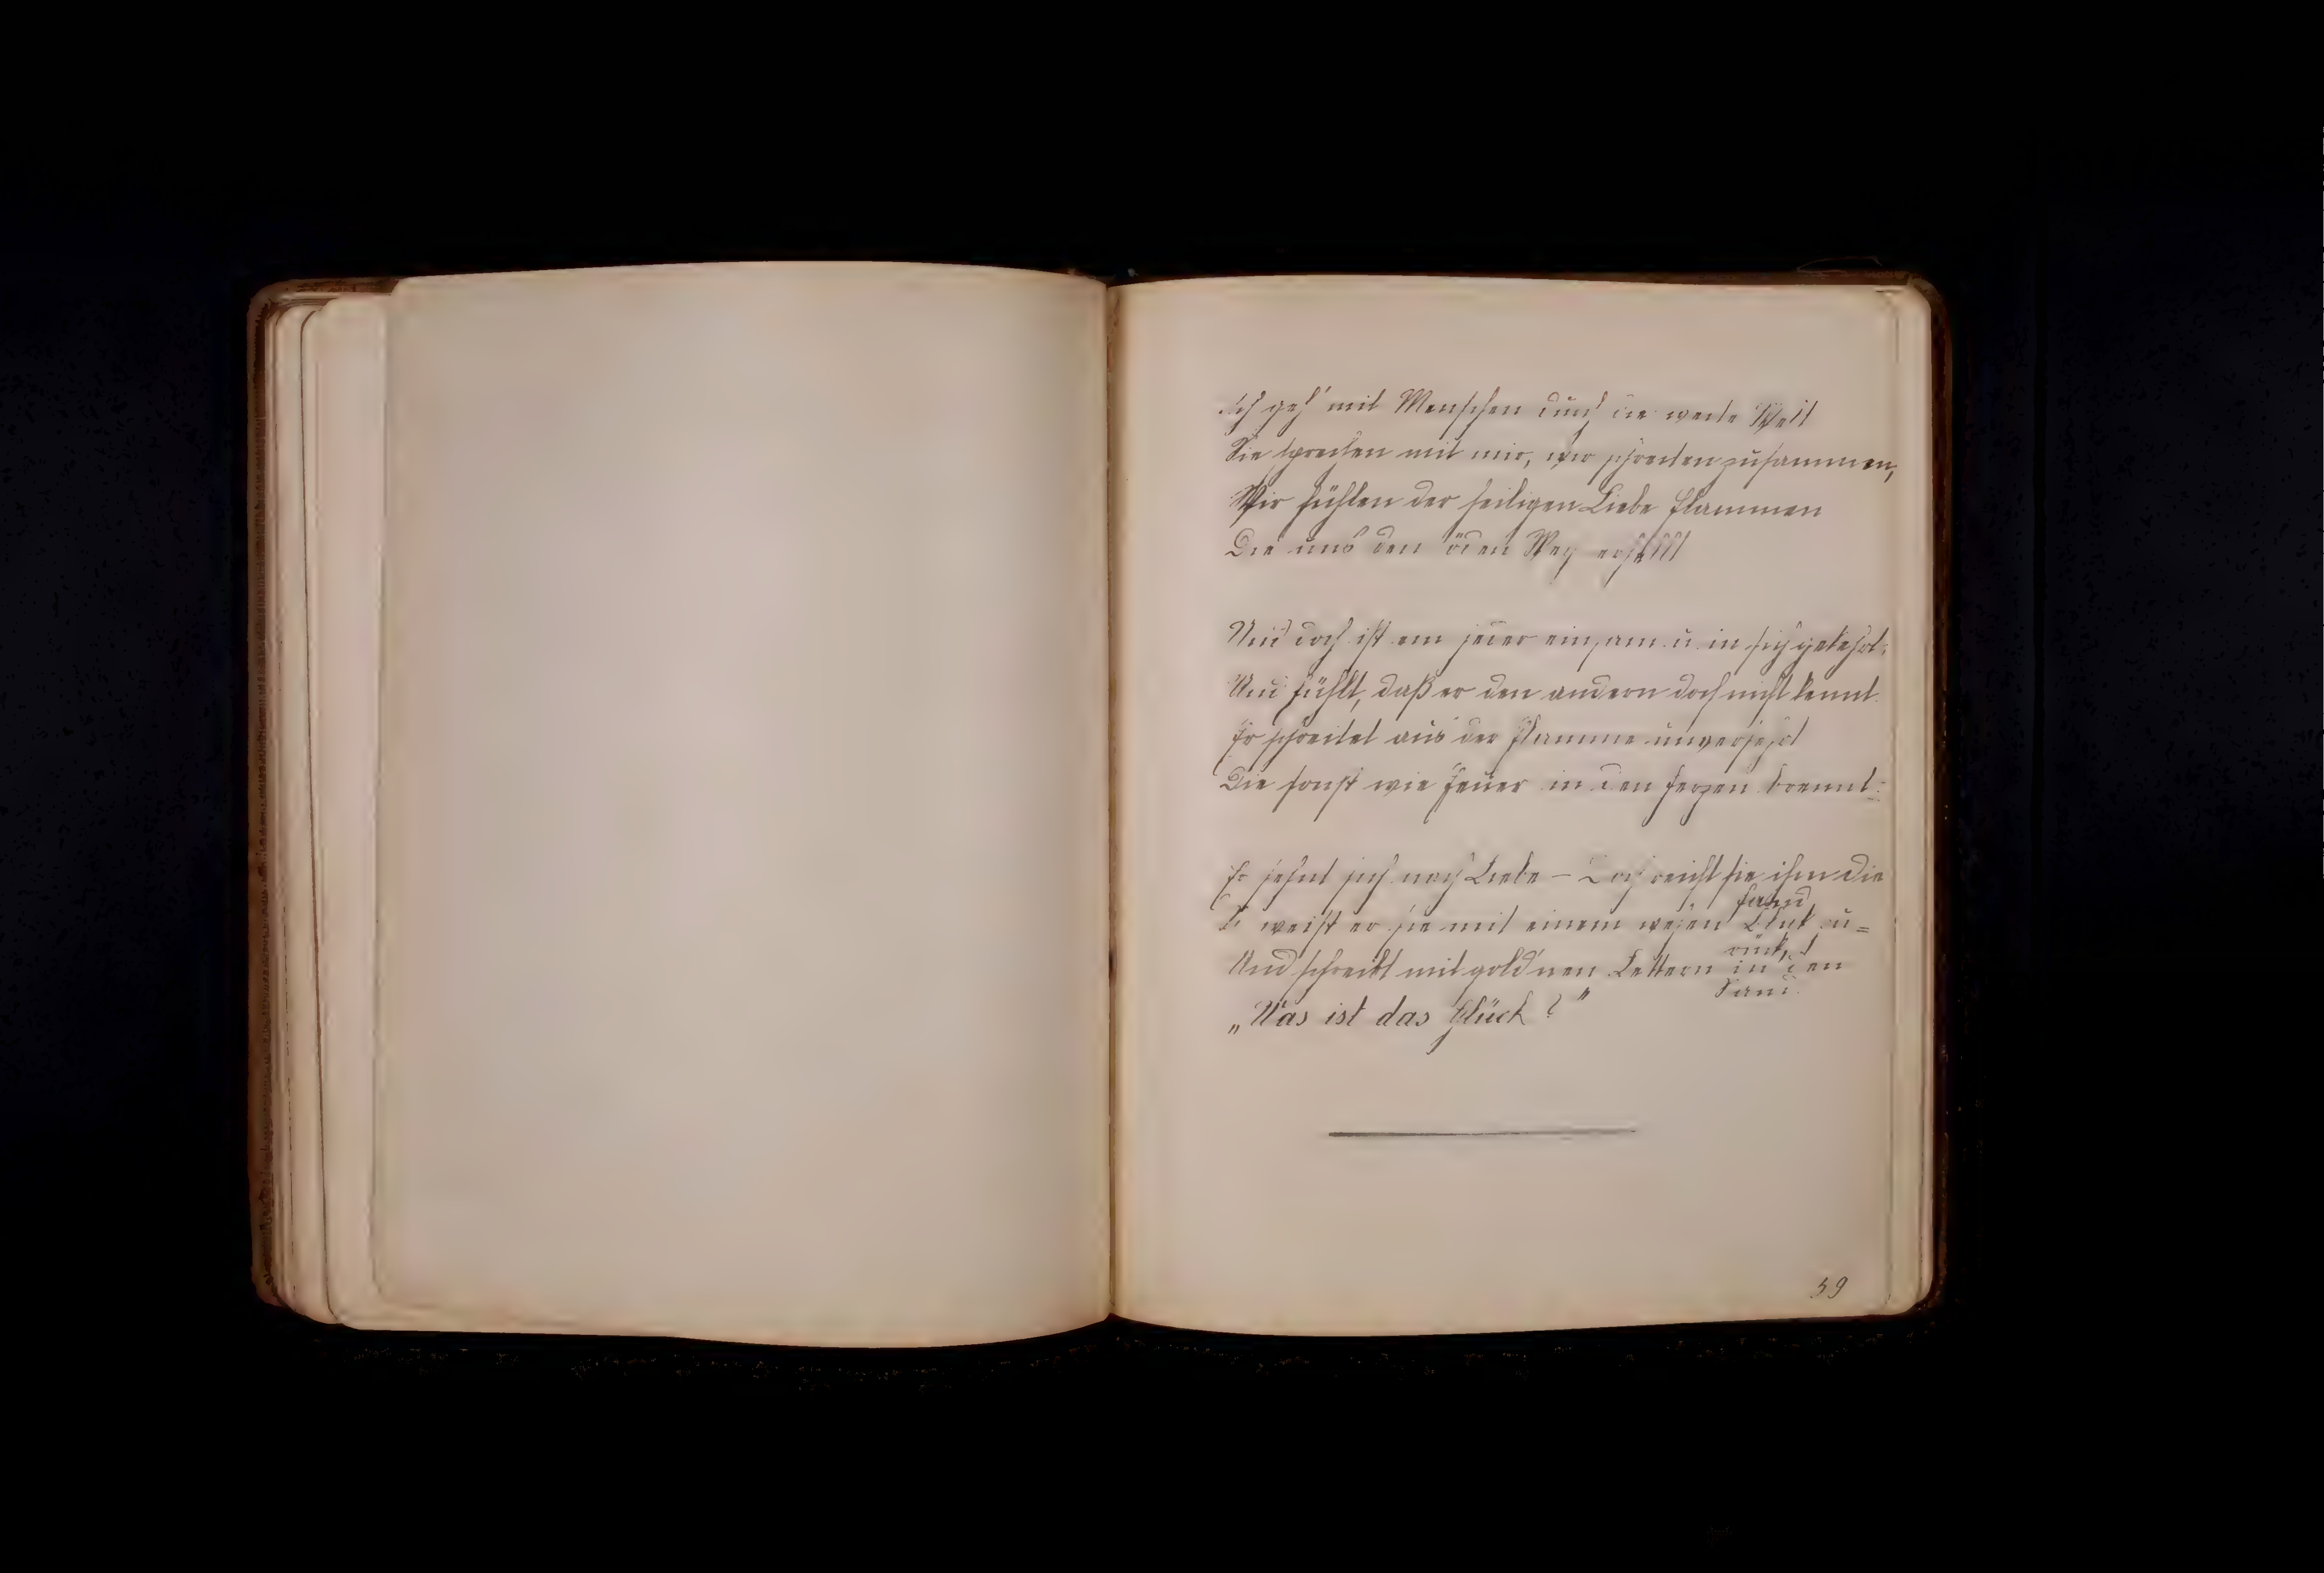 Ich geh' mit Menschen durch die weite Welt
Sie sprechen mit mir, wir schreiten zusammen,
Wir fühlen der heiligen Liebe Flammen
Die uns den öden Weg erhellt
Und doch ist ein jeder einsam u. in sich gekehrt,
Und fühlt, daß er den andern doch nicht kennt.
Er schreitet aus der Flamme unversehrt
Die sonst wie Feuer in den Herzen brennt.
Er sehnt sich nach Liebe – Doch reicht sie ihm die
Hand
So weist er sie mit einem wehen Blick zu=
rück,
Und schreibt mit gold'nen Lettern in den
Sand.
„Was ist das Glück?"
59